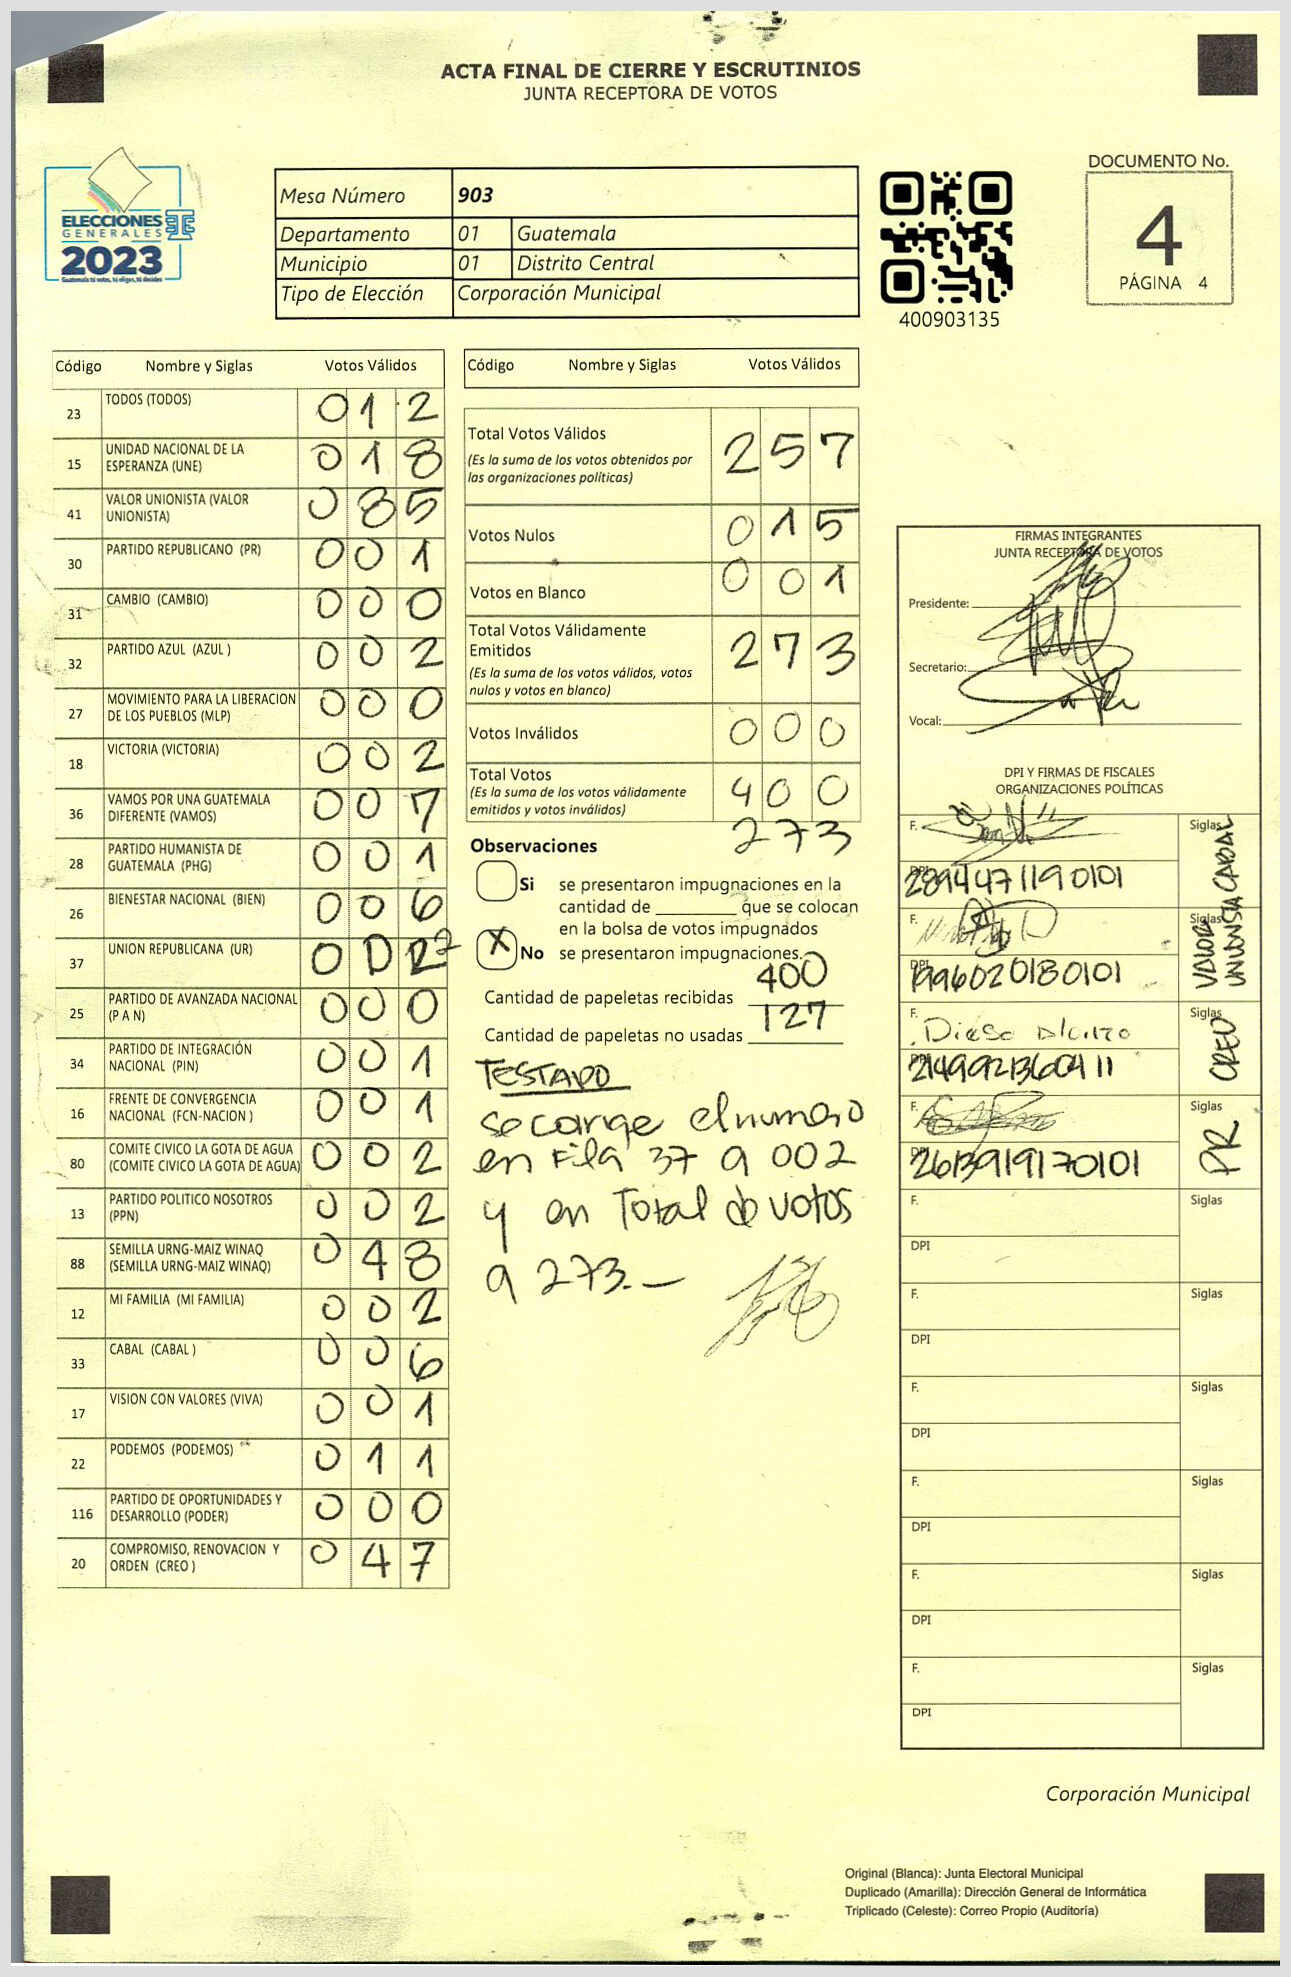 ACTA FINAL DE CIERRE Y ESCRUTINIOS
JUNTA RECEPTORA DE VOTOS
ELECCIONES
GENERALES
2023
Guatemala tú votas, tú eliges, tú decides
Mesa Número 903
Departamento 01 Guatemala
Municipio 01 Distrito Central
Tipo de Elección Corporación Municipal
400903135
DOCUMENTO No.
4
PÁGINA 4
Código Nombre y Siglas Votos Válidos
23 TODOS (TODOS) 0 1 2
15 UNIDAD NACIONAL DE LA ESPERANZA (UNE) 0 1 8
41 VALOR UNIONISTA (VALOR UNIONISTA) 0 8 5
30 PARTIDO REPUBLICANO (PR) 0 0 1
31 CAMBIO (CAMBIO) 0 0 0
32 PARTIDO AZUL (AZUL ) 0 0 2
27 MOVIMIENTO PARA LA LIBERACION DE LOS PUEBLOS (MLP) 0 0 0
18 VICTORIA (VICTORIA) 0 0 2
36 VAMOS POR UNA GUATEMALA DIFERENTE (VAMOS) 0 0 7
28 PARTIDO HUMANISTA DE GUATEMALA (PHG) 0 0 1
26 BIENESTAR NACIONAL (BIEN) 0 0 6
37 UNION REPUBLICANA (UR) 0 0 2
25 PARTIDO DE AVANZADA NACIONAL (P A N) 0 0 0
34 PARTIDO DE INTEGRACIÓN NACIONAL (PIN) 0 0 1
16 FRENTE DE CONVERGENCIA NACIONAL (FCN-NACION ) 0 0 1
80 COMITE CIVICO LA GOTA DE AGUA (COMITE CIVICO LA GOTA DE AGUA) 0 0 2
13 PARTIDO POLITICO NOSOTROS (PPN) 0 0 2
88 SEMILLA URNG-MAIZ WINAQ (SEMILLA URNG-MAIZ WINAQ) 0 4 8
12 MI FAMILIA (MI FAMILIA) 0 0 2
33 CABAL (CABAL ) 0 0 6
17 VISION CON VALORES (VIVA) 0 0 1
22 PODEMOS (PODEMOS) 0 1 1
116 PARTIDO DE OPORTUNIDADES Y DESARROLLO (PODER) 0 0 0
20 COMPROMISO, RENOVACION Y ORDEN (CREO ) 0 4 7
Código Nombre y Siglas Votos Válidos
Total Votos Válidos 2 5 7
(Es la suma de los votos obtenidos por
las organizaciones políticas)
Votos Nulos 0 1 5
Votos en Blanco 0 0 1
Total Votos Válidamente
Emitidos 2 7 3
(Es la suma de los votos válidos, votos
nulos y votos en blanco)
Votos Inválidos 0 0 0
Total Votos 4 0 0
(Es la suma de los votos válidamente
emitidos y votos inválidos)
273
Observaciones
Si se presentaron impugnaciones en la
cantidad de ________ que se colocan
en la bolsa de votos impugnados
X No se presentaron impugnaciones.
Cantidad de papeletas recibidas 400
Cantidad de papeletas no usadas 127
TESTADO
se carge el numero
en Fila 37 a 002
y en Total de votos
a 273.—
FIRMAS INTEGRANTES
JUNTA RECEPTORA DE VOTOS
Presidente:
Secretario:
Vocal:
DPI Y FIRMAS DE FISCALES
ORGANIZACIONES POLÍTICAS
F. Siglas CABAL
DPI 2894471190101
F. Siglas VALOR UNIONISTA
DPI 1996020180101
F. Siglas CREO
DPI 2149921360411
F. Siglas PR
DPI 2613919170101
F. Siglas
DPI
F. Siglas
DPI
F. Siglas
DPI
F. Siglas
DPI
F. Siglas
DPI
F. Siglas
DPI
Corporación Municipal
Original (Blanca): Junta Electoral Municipal
Duplicado (Amarilla): Dirección General de Informática
Triplicado (Celeste): Correo Propio (Auditoría)